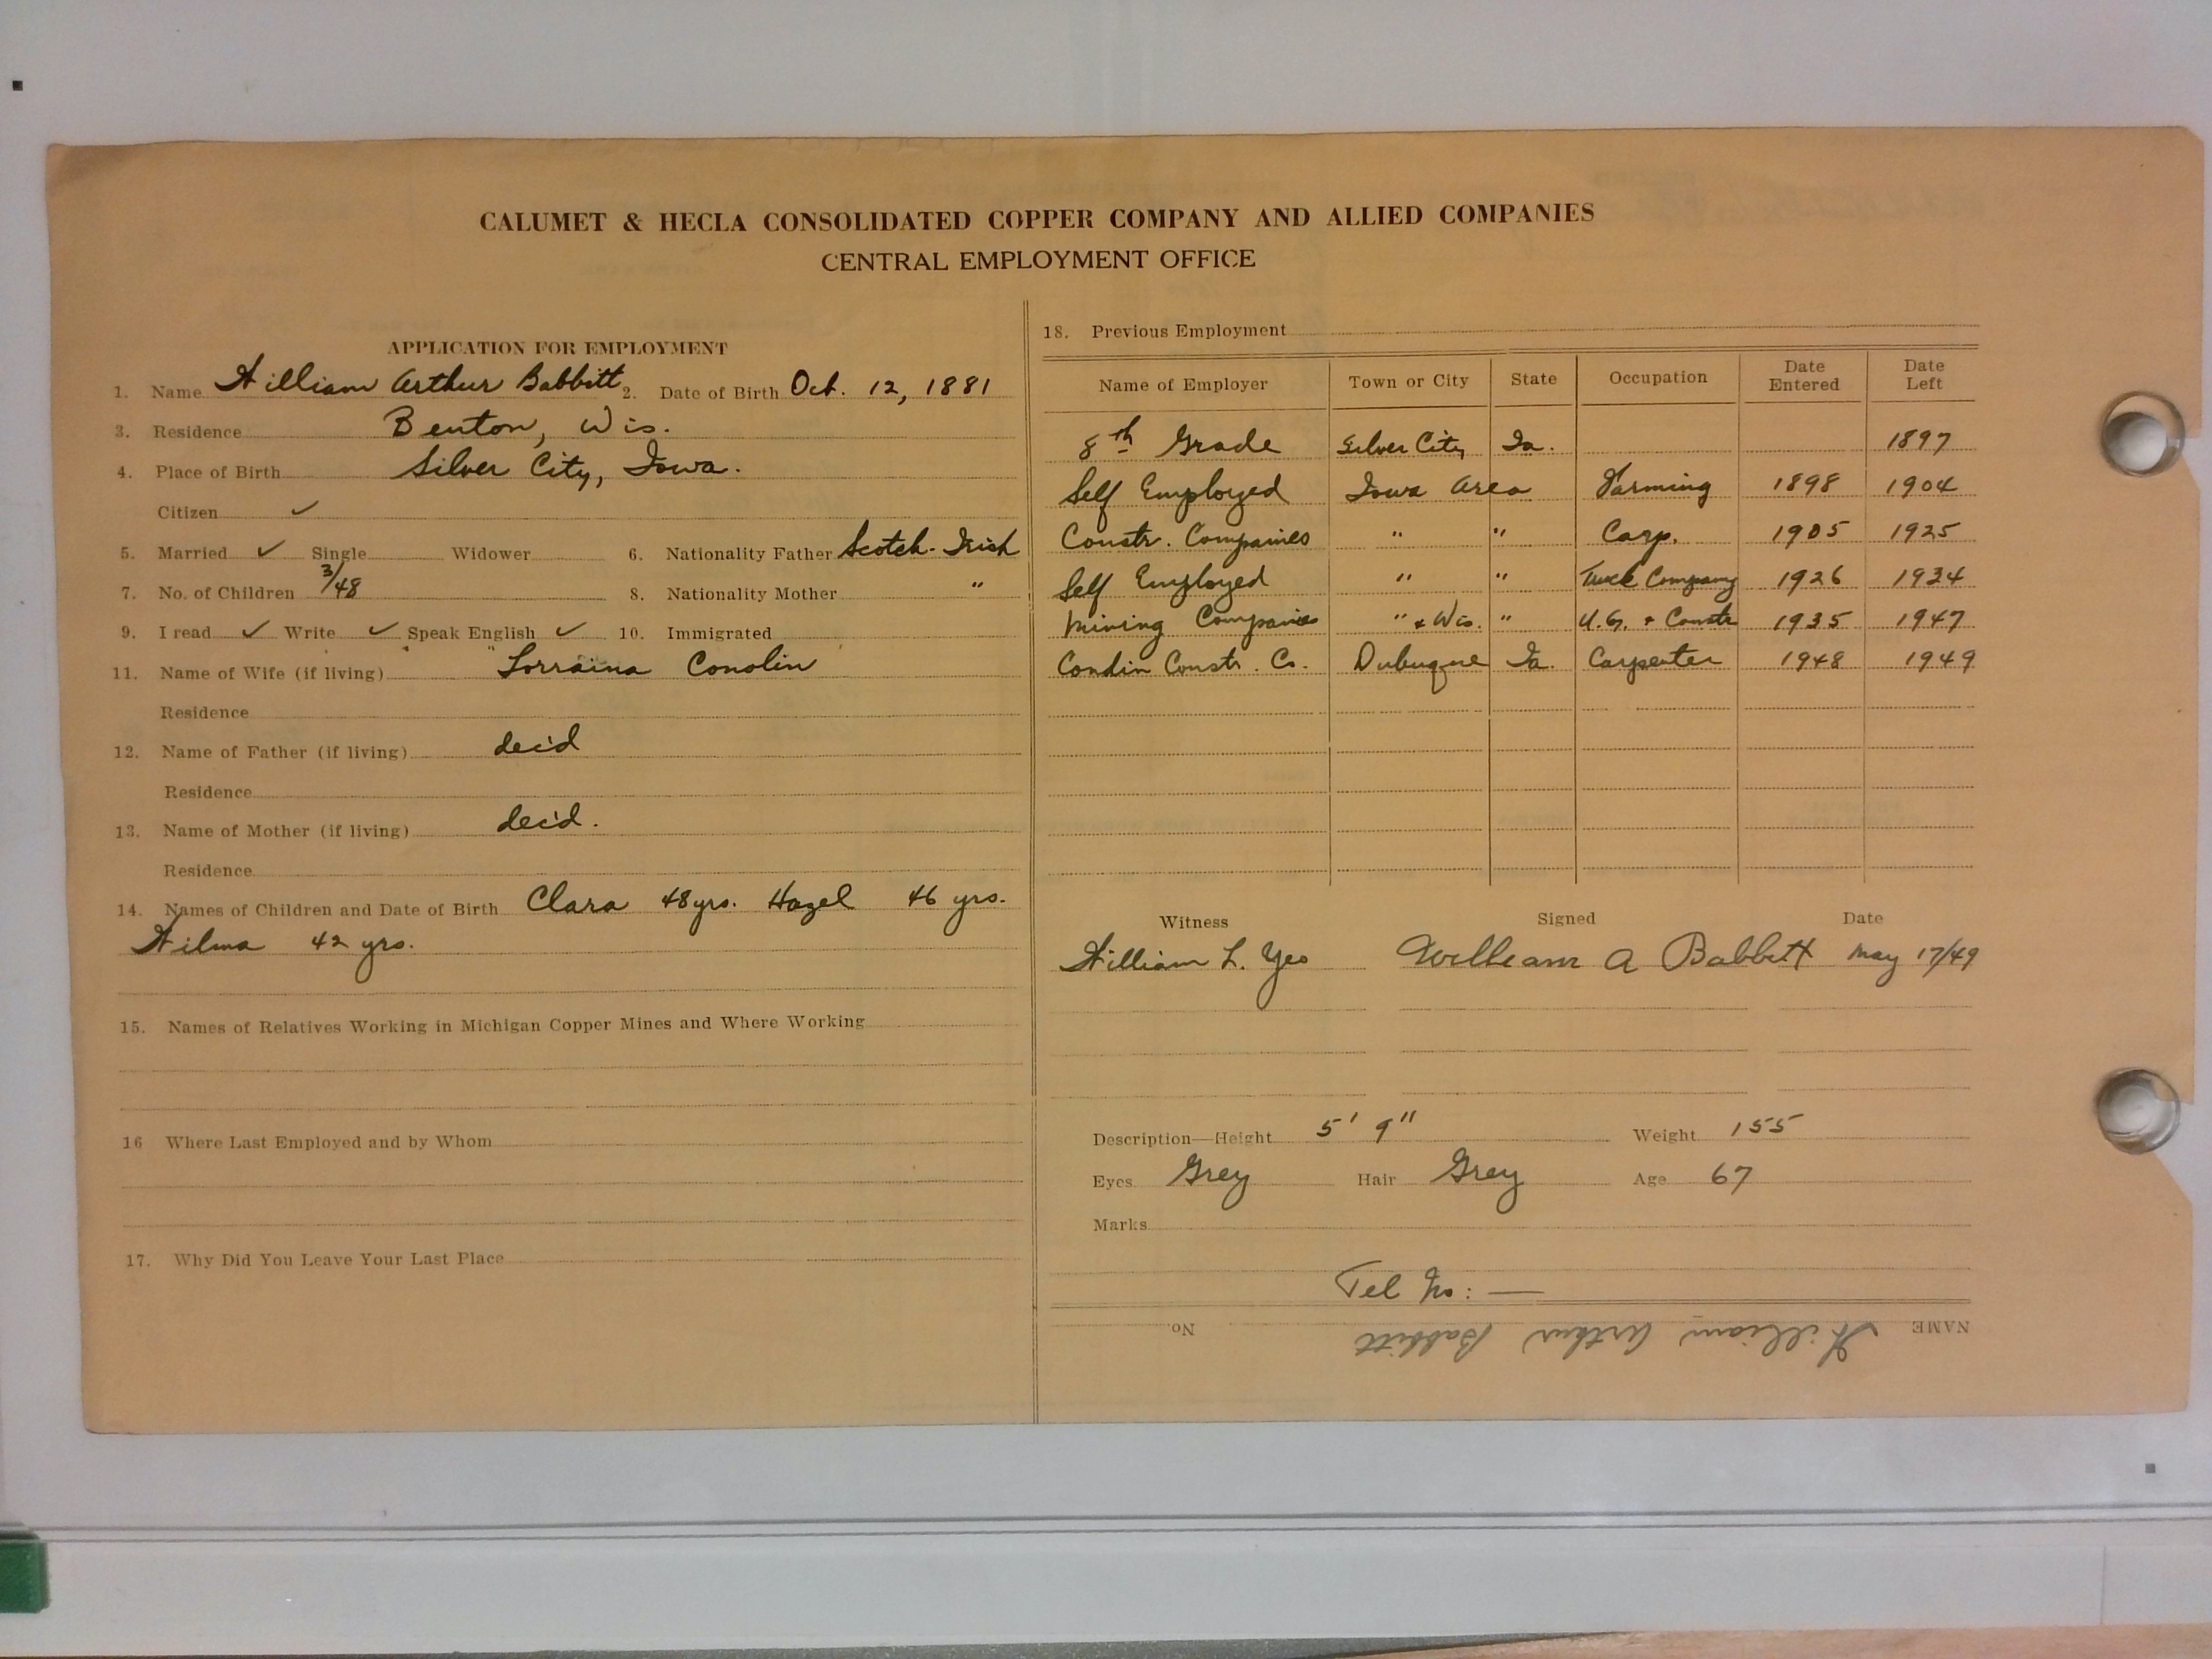 CALUMET & HECLA CONSOLIDATED COPPER COMPANY AND ALLIED COMPANIES
CENTRAL EMPLOYMENT OFFICE
APPLICATION FOR EMPLOYMENT
1. Name William Arthur Babbitt 2. Date of Birth Oct. 12, 1881
3. Residence Benton, Wis.
4. Place of Birth Silver City, Iowa.
Citizen ✓
5. Married ✓ Single Widower 6. Nationality Father Scotch-Irish
7. No. of Children 3/48 8. Nationality Mother "
9. I read ✓ Write ✓ Speak English ✓ 10. Immigrated
11. Name of Wife (if living) Lorraina Conolin
Residence
12. Name of Father (if living) dec'd
Residence
13. Name of Mother (if living) dec'd.
Residence
14. Names of Children and Date of Birth Clara 48 yrs. Hazel 46 yrs.
Wilma 42 yrs.
15. Names of Relatives Working in Michigan Copper Mines and Where Working
16 Where Last Employed and by Whom
17. Why Did You Leave Your Last Place
18. Previous Employment
Name of Employer Town or City State Occupation Date Entered Date Left
8th Grade Silver City Ia. 1897
Self Employed Iowa Area Farming 1898 1904
Constr. Companies " " Carp. 1905 1925
Self Employed " " Truck Company 1926 1934
Mining Companies " & Wis. " U.G. & Constr 1935 1947
Condin Constr. Co. Dubuque Ia. Carpenter 1948 1949
Witness Signed Date
William L. Yeo William A Babbitt May 17/49
Description—Height 5' 9" Weight 155
Eyes Grey Hair Grey Age 67
Marks
Tel No: —
NAME William Arthur Babbitt No.